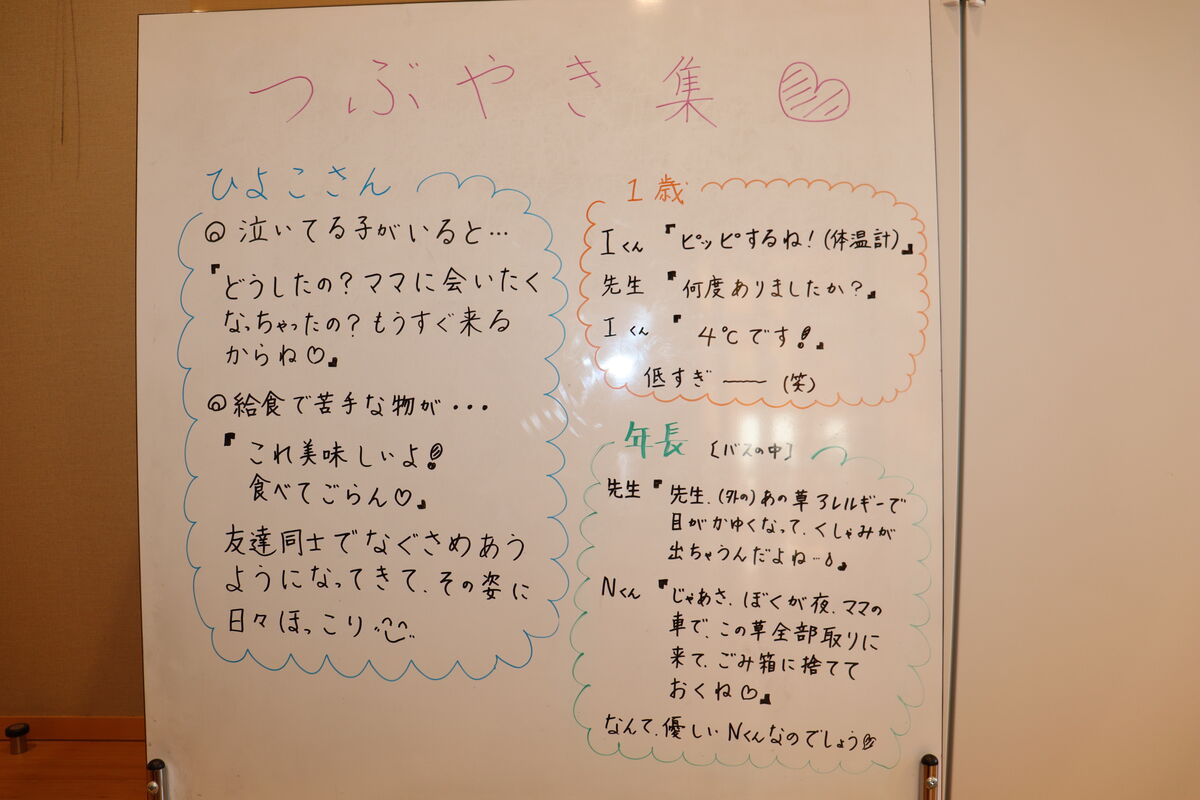 つぶやき集♡
ひよこさん
◎ 泣いてる子がいると…
『どうしたの？ママに会いたく
なっちゃったの？もうすぐ来る
からね♡』
◎ 給食で苦手な物が・・・
『これ美味しいよ！
食べてごらん♡』
友達同士でなぐさめあう
ようになってきて、その姿に
日々ほっこり
1歳
Iくん 『ピッピするね！(体温計)』
先生 『何度ありましたか？』
Iくん 『4℃です！』
低すぎ――(笑)
年長 [バスの中]
先生 『先生、(外の)あの草アレルギーで
目がかゆくなって、くしゃみが
出ちゃうんだよね…』
Nくん 『じゃあさ、ぼくが夜、ママの
車で、この草全部取りに
来て、ごみ箱に捨てて
おくね♡』
なんて、優しいNくんなのでしょう♡